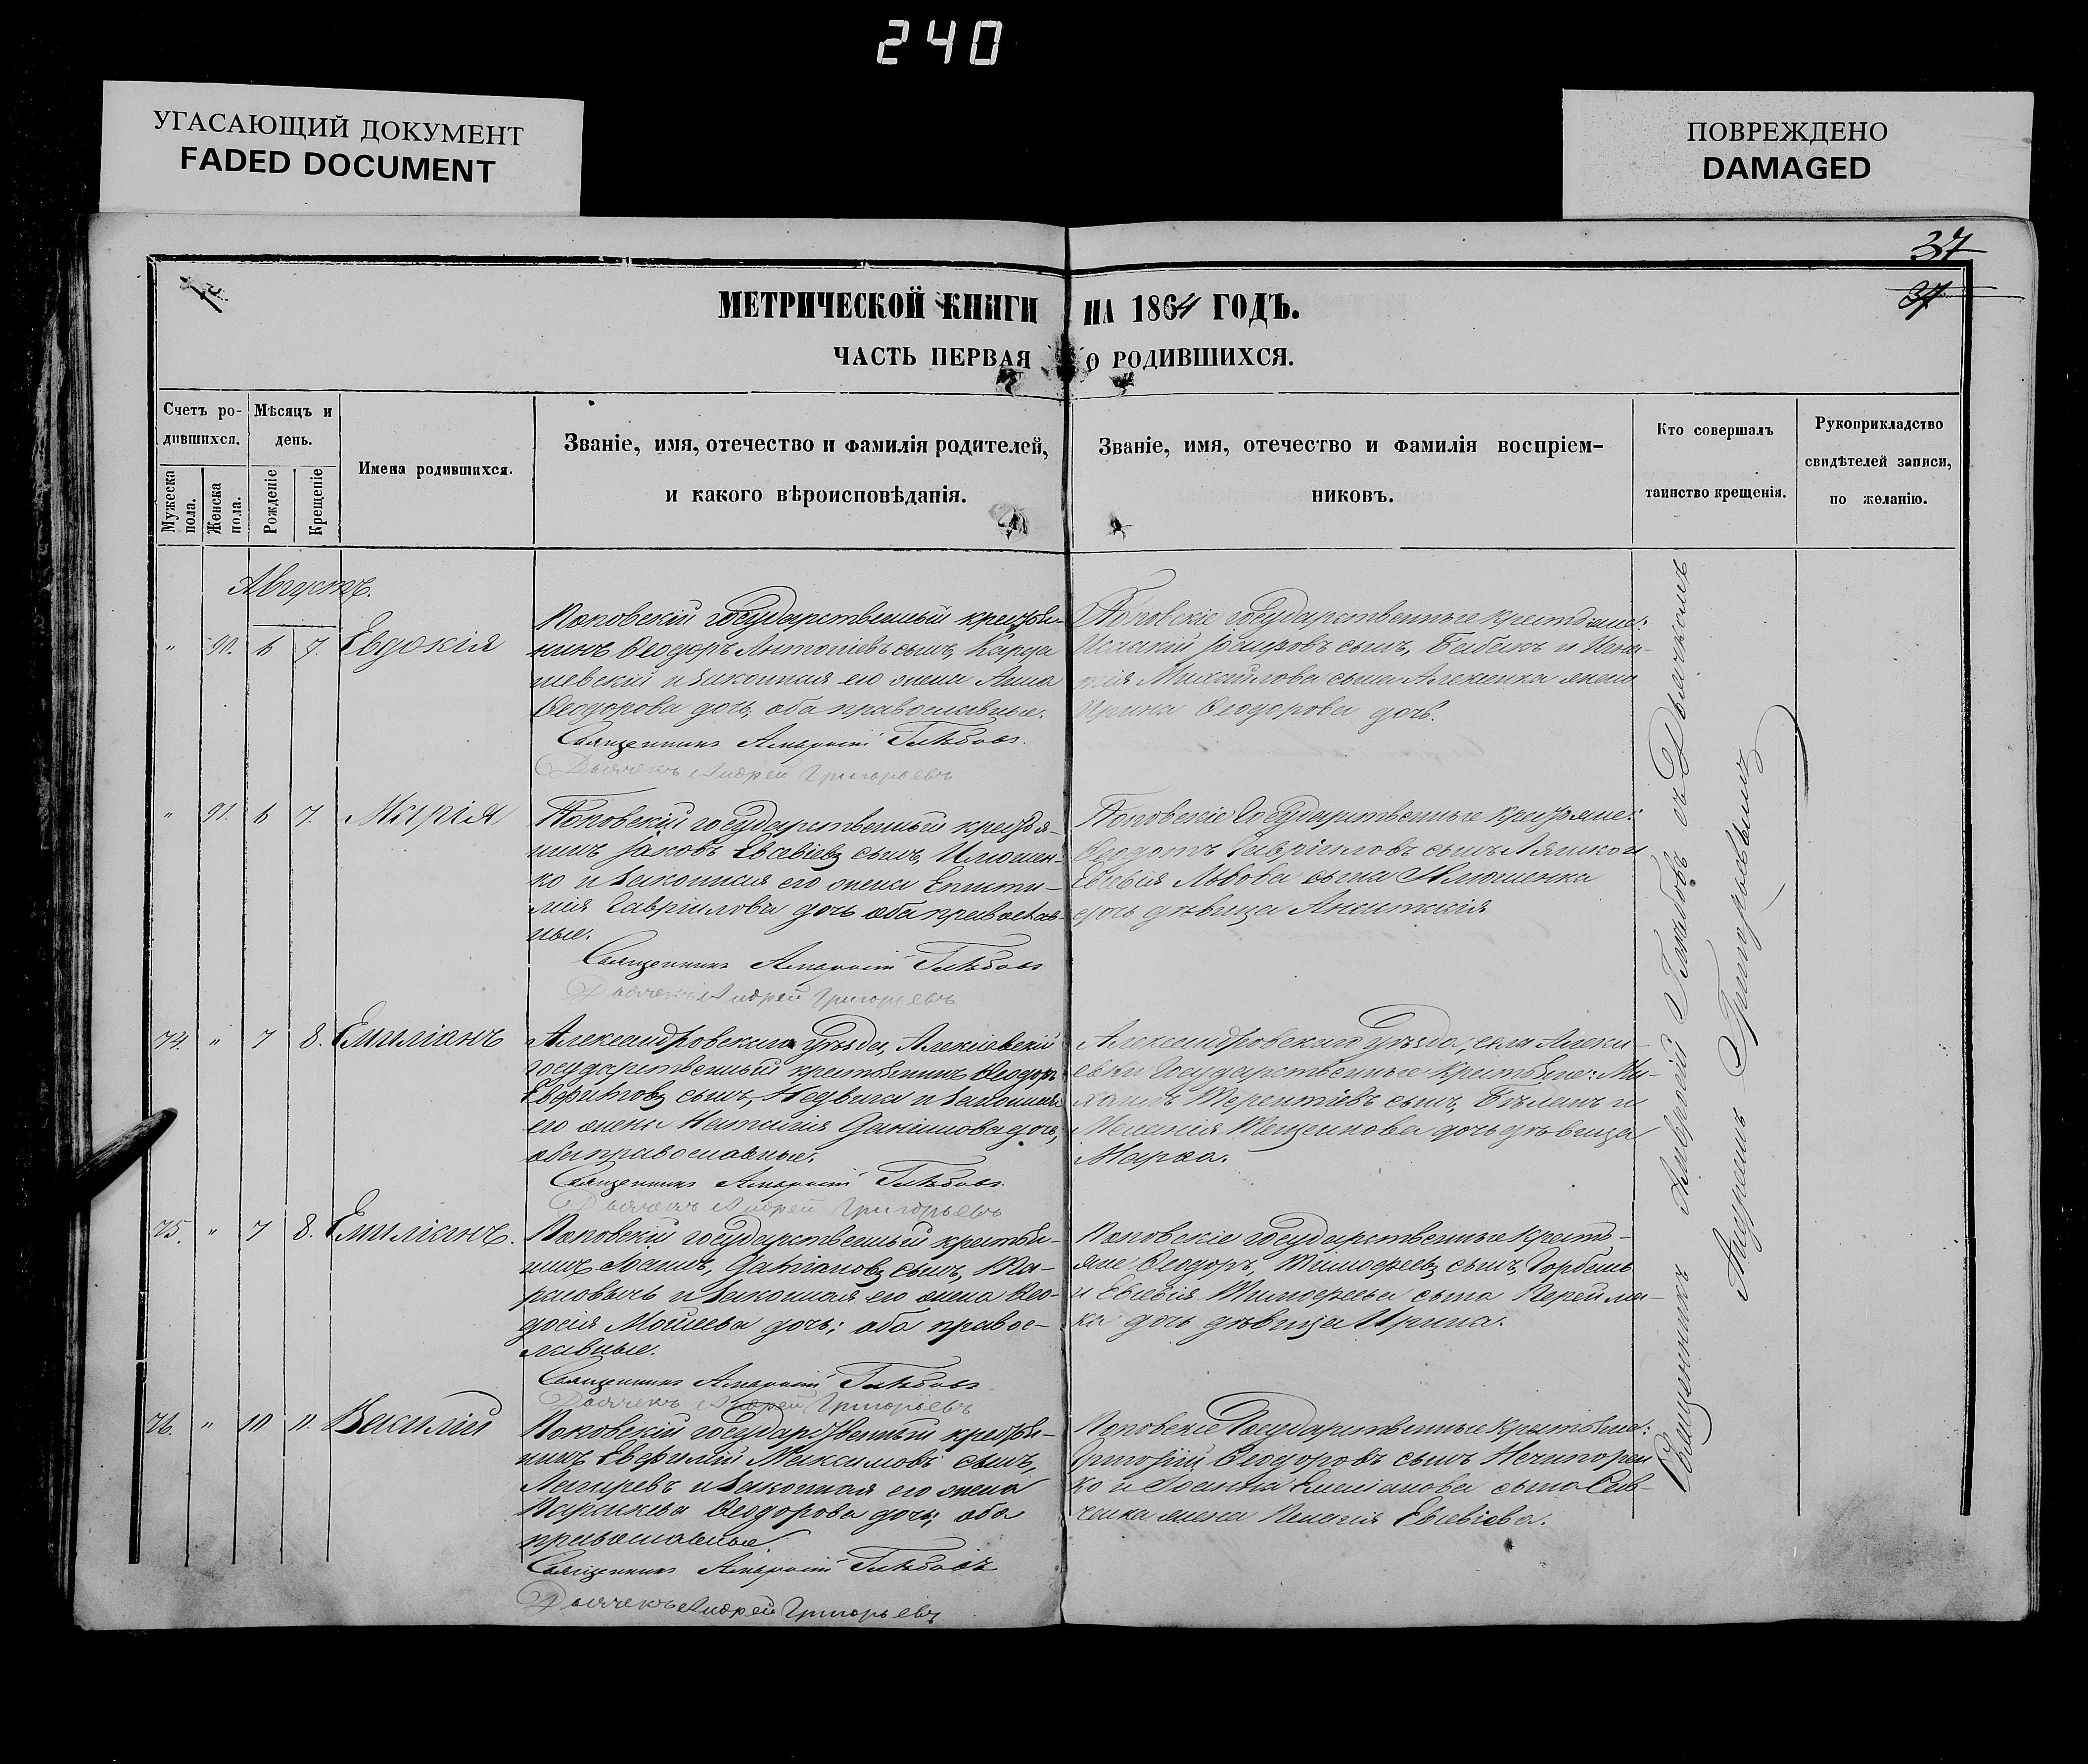 240
УГАСАЮЩИЙ ДОКУМЕНТ
FADED DOCUMENT
ПОВРЕЖДЕНО
DAMAGED
37
37
МЕТРИЧЕСКОЙ КНИГИ НА 1864 ГОДЪ.
ЧАСТЬ ПЕРВАЯ О РОДИВШИХСЯ.
Счетъ ро-
дившихся.
Мужеска
пола.
Женска
пола.
Мѣсяцъ и
день.
Рожденіе
Крещеніе
Имена родившихся.
Званіе, имя, отечество и фамилія родителей,
и какого вѣроисповѣданія.
Званіе, имя, отечество и фамилія воспріем-
никовъ.
Кто совершалъ
таинство крещенія.
Рукоприкладство
свидѣтелей записи,
по желанію.
Августъ.
" 90. 6 7. Евдокія
Поповскій государственный крестья-
нинъ Ѳеодоръ Антоніевъ сынъ, Карда
шевскій и законная его жена Анна
Ѳеодорова дочь, оба православные.
Священникъ Амвросій Глѣбовъ.
Дьячекъ Андрей Григорьевъ
Поповскіе государственные крестьяне:
сынъ, Бабакъ и
Михайлова сына Алексенка жена
Ирина Ѳеодорова дочь.
" 91. 6 7. Марія
Поповскій государственный крестья-
нинъ Іаковъ Евсевіевъ сынъ, Илюшен-
ко и законная его жена Еписти-
мія Гавріилова дочь оба православ-
ные.
Священникъ Амвросій Глѣбовъ
Дьячекъ Андрей Григорьевъ
Поповскіе Государственные крестьяне:
Ѳеодотъ Гавріиловъ сынъ Ляшко и
Евсевія Львова сына Илюшенка
дочь дѣвица Анастасія
74. " 7 8. Емиліанъ
Александровскаго уѣзда, Алексіевскій
государственный крестьянинъ Ѳеодоръ
сынъ, Недвига и законная
его жена Наталія Даніилова дочь,
оба православные.
Священникъ Амвросій Глѣбовъ.
Дьячекъ Андрей Григорьевъ
Александровскаго уѣзда, села Алекси-
евки Государственные крестьяне: Ми-
хаилъ Терентіевъ сынъ, Бѣланъ и
дочь дѣвица
Марѳа.
75. " 7 8. Емиліанъ.
Поповскій государственный крестья-
нинъ Іоаннъ, сынъ, Та-
расовычъ и законная его жена Ѳео-
досія Моисеева дочь; оба правос-
лавные.
Священникъ Амвросій Глѣбовъ
Дьячекъ Андрей Григорьевъ
Поповскіе государственные кресть-
яне Ѳеодоръ, Тимоѳеевъ сынъ, Горбань
и Евсевія Тимоѳеева сына
ка дочь дѣвица Ирина.
76. " 10 11. Василій
Поповскій государственный крестья-
нинъ Максимовъ сынъ,
и законная его жена
Ѳеодорова дочь; оба
православные
Священникъ Амвросій Глѣбовъ
Дьячекъ Андрей Григорьевъ
Поповскіе Государственные крестьяне:
Григорій Ѳеодоровъ сынъ Нечипорен
ко и Іоанна Емеліанова сына Сав-
ченка жена Пелагія Евсевіева.
Священникъ Амвросій Глѣбовъ съ Дьячкомъ
Андреемъ Григорьевымъ